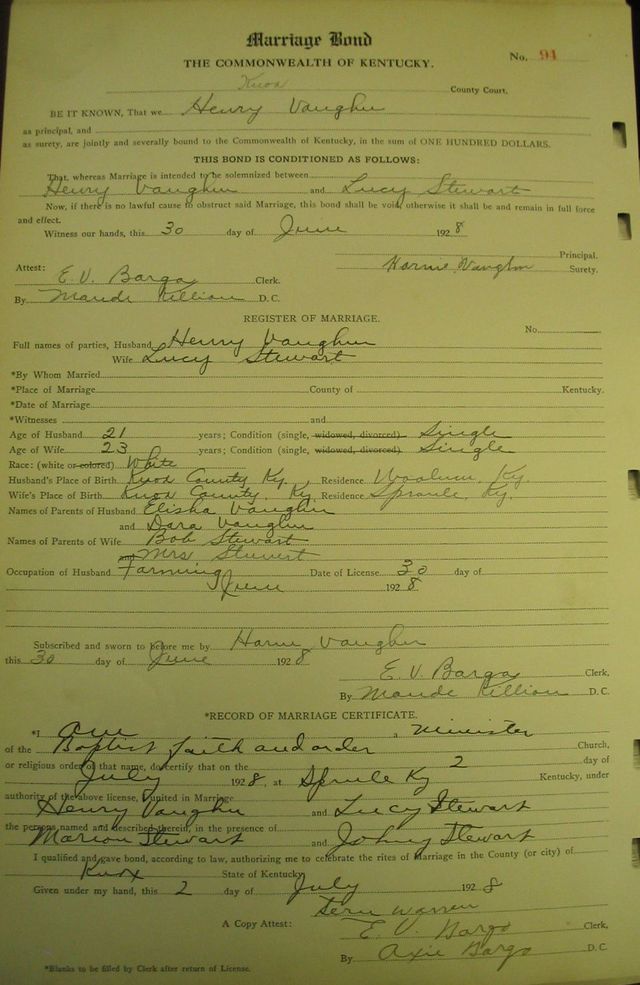 Marriage Bond
THE COMMONWEALTH OF KENTUCKY.
No. 91
Knox County Court.
BE IT KNOWN, That we Henry Vaughn
as principal, and
as surety, are jointly and severally bound to the Commonwealth of Kentucky, in the sum of ONE HUNDRED DOLLARS.
THIS BOND IS CONDITIONED AS FOLLOWS:
That, whereas Marriage is intended to be solemnized between
Henry Vaughn and Lucy Stewart
Now, if there is no lawful cause to obstruct said Marriage, this bond shall be void, otherwise it shall be and remain in full force
and effect.
Witness our hands, this 30 day of June 1928
Principal.
Attest: Vaughn Surety.
E. V. Bargo Clerk.
By Maude Killion D. C.
REGISTER OF MARRIAGE.
No.
Full names of parties, Husband Henry Vaughn
Wife Lucy Stewart
*By Whom Married
*Place of Marriage County of Kentucky.
*Date of Marriage
*Witnesses and
Age of Husband 21 years; Condition (single, widowed, divorced) Single
Age of Wife 23 years; Condition (single, widowed, divorced) Single
Race: (white or colored) White
Husband's Place of Birth Knox County Ky. Residence Woollum, Ky.
Wife's Place of Birth Knox County, Ky. Residence Sproule, Ky.
Names of Parents of Husband Elisha Vaughn
and Dara Vaughn
Names of Parents of Wife Bob Stewart
and Mrs Stewert
Occupation of Husband Farming Date of License 30 day of
June 1928
Subscribed and sworn to before me by Vaughn
this 30 day of June 1928
E. V. Bargo Clerk,
By Maude Killion D. C.
*RECORD OF MARRIAGE CERTIFICATE.
*I am a Minister
of the Baptist faith and order Church,
or religious order of that name, do certify that on the 2 day of
July 1928, at Sprule Ky Kentucky, under
authority of the above license, I united in Marriage
Henry Vaughn and Lucy Stewart
the persons named and described therein, in the presence of
Marion Stewart and Johny Stewart
I qualified and gave bond, according to law, authorizing me to celebrate the rites of Marriage in the County (or city) of
Knox State of Kentucky
Given under my hand, this 2 day of July 1928
Warren
A Copy Attest: E. V. Bargo Clerk,
By Axie Bargo D. C.
*Blanks to be filled by Clerk after return of License.